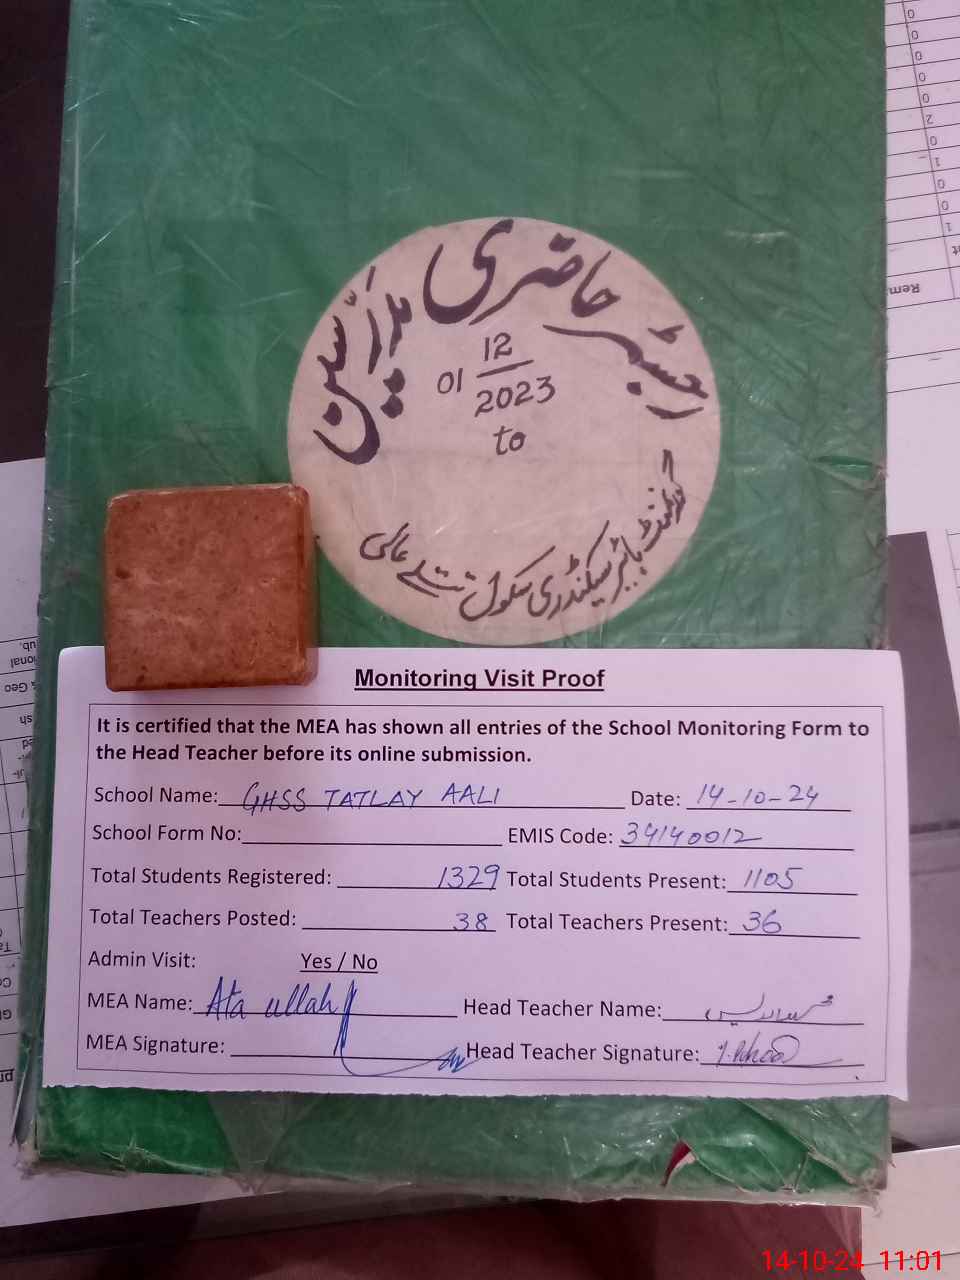 رجسٹر حاضری مدرّسین
12
01
2023
to
گورنمنٹ ہائیر سیکنڈری سکول تتلے عالی
Monitoring Visit Proof
It is certified that the MEA has shown all entries of the School Monitoring Form to
the Head Teacher before its online submission.
School Name: GHSS TATLAY AALI Date: 14-10-24
School Form No: EMIS Code: 34140012
Total Students Registered: 1329 Total Students Present: 1105
Total Teachers Posted: 38 Total Teachers Present: 36
Admin Visit: Yes / No
MEA Name: Ata ullah Head Teacher Name:
MEA Signature: Head Teacher Signature:
Rem
14-10-24 11:01